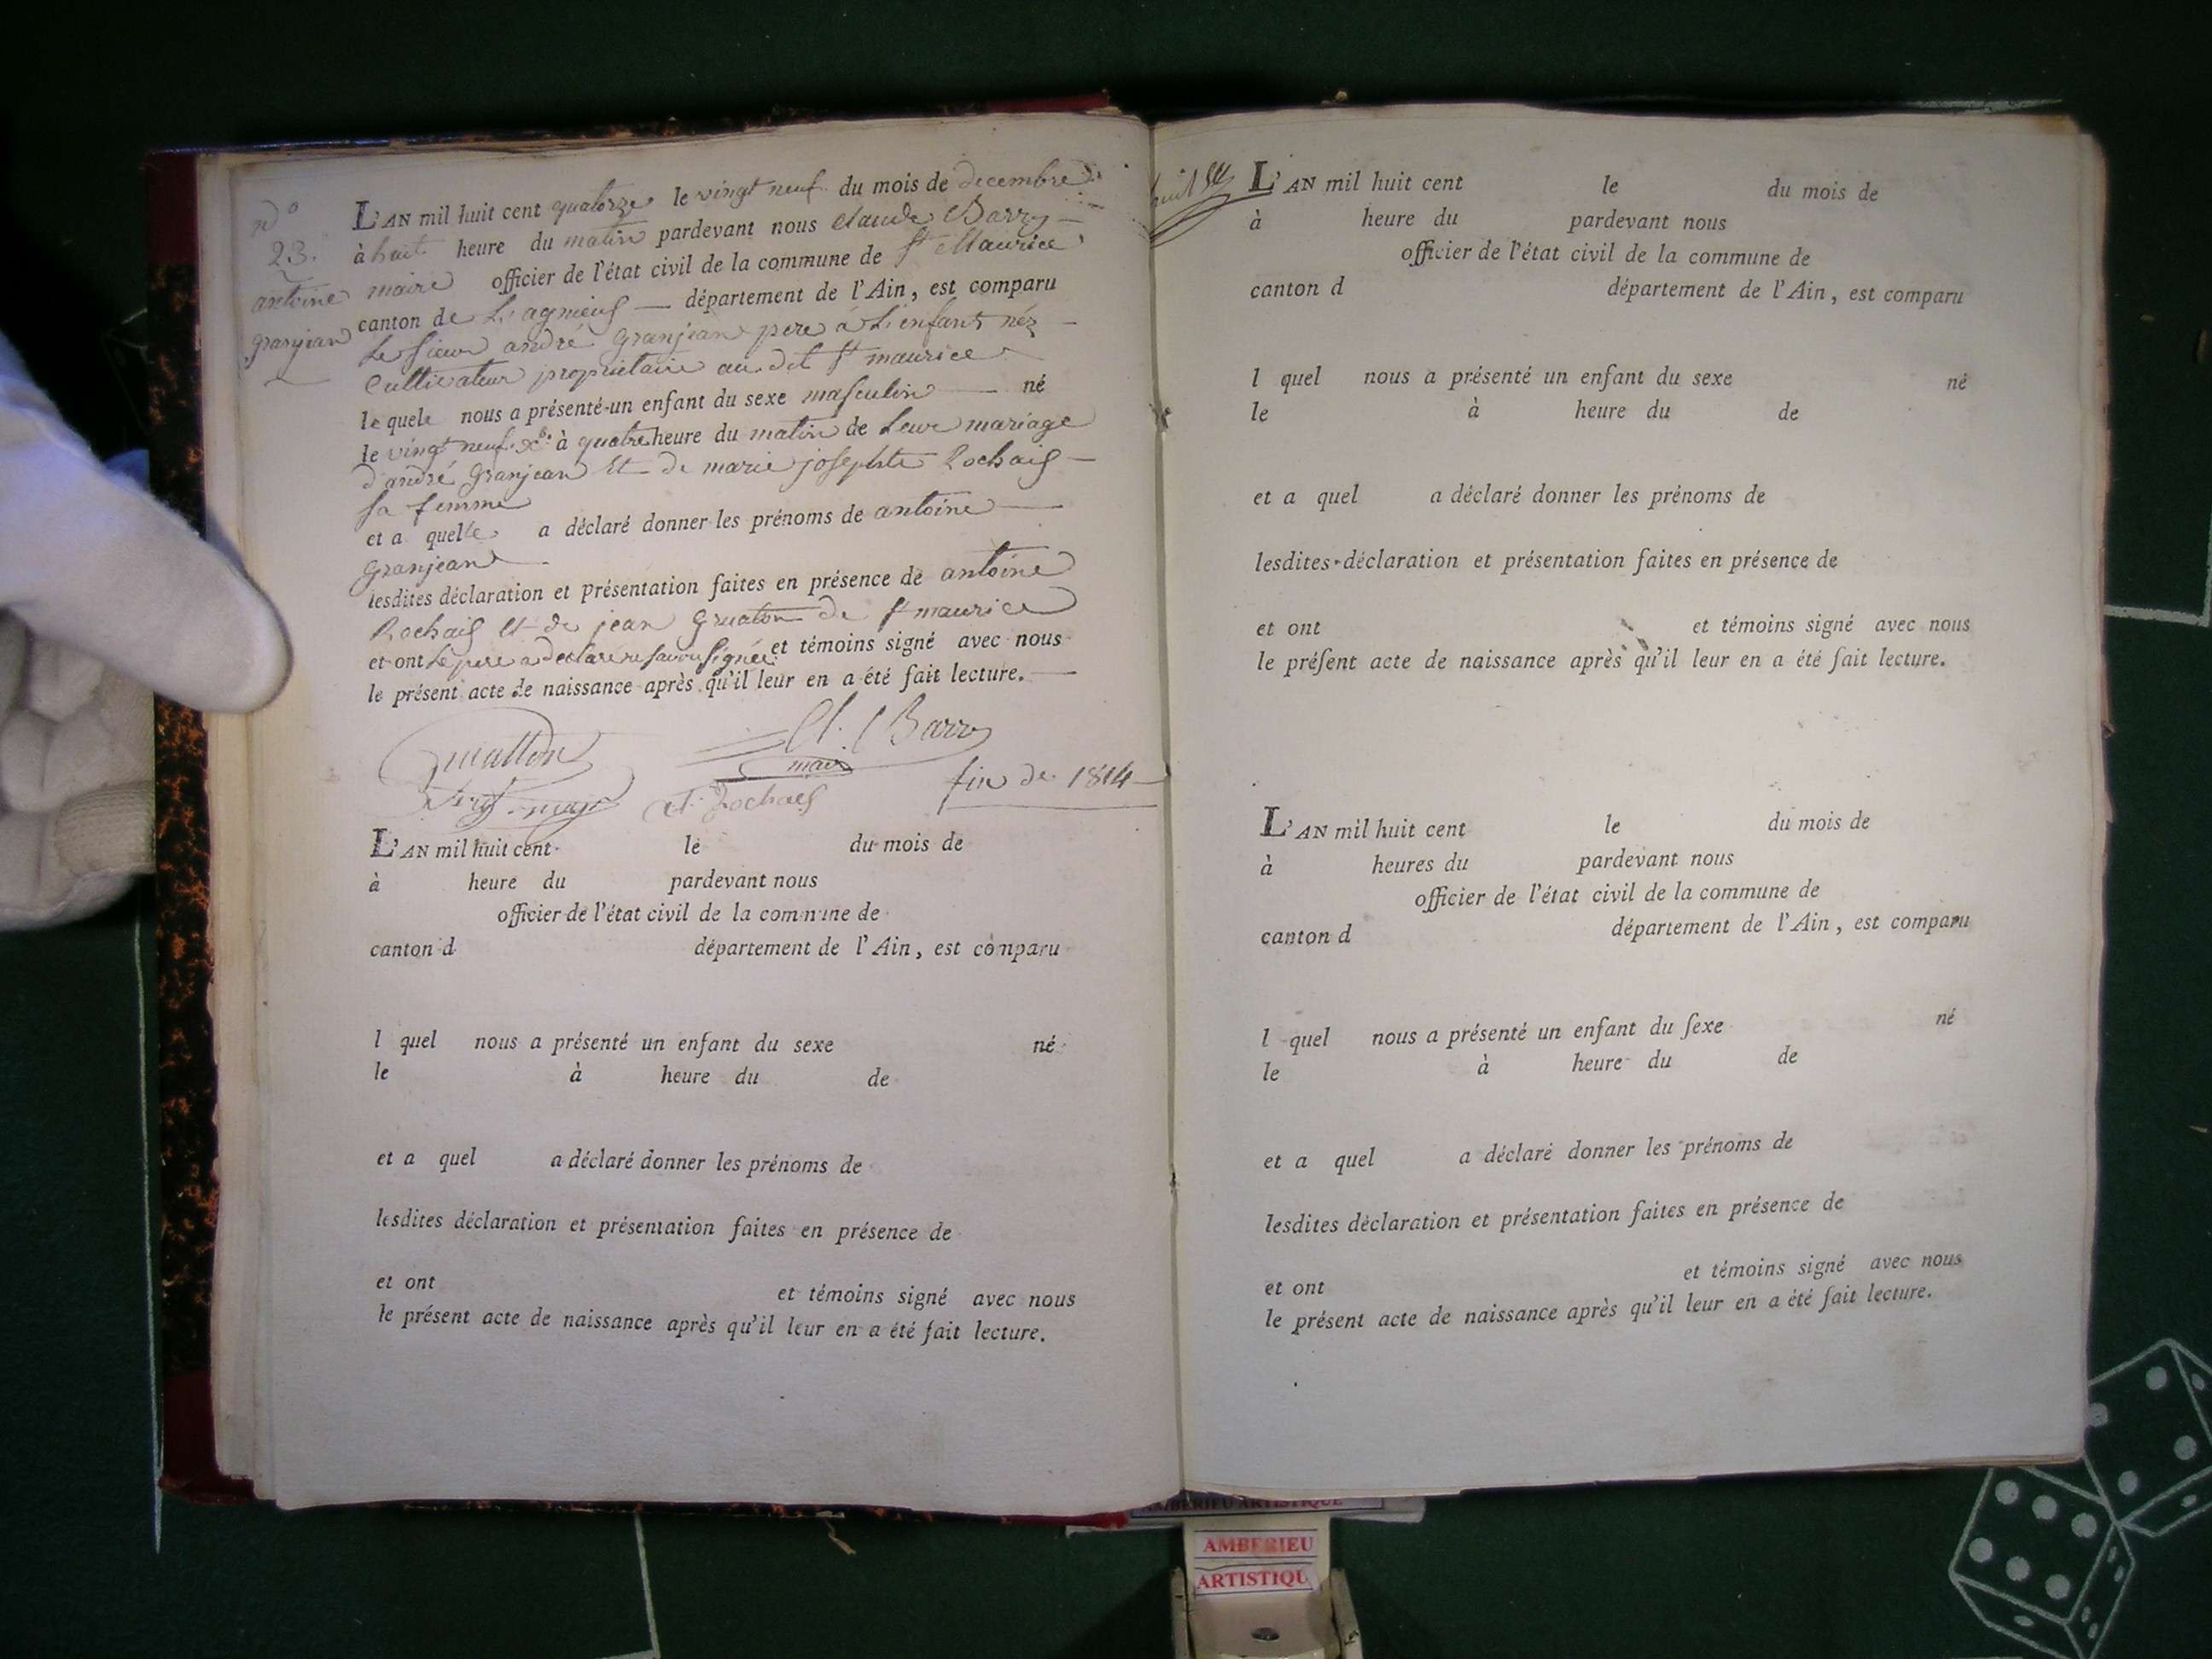 n°
23.
antoine
granjean
L'AN mil huit cent quatorze le vingt neuf du mois de decembre
à huit heure du matin pardevant nous claude Barry
maire officier de l'état civil de la commune de St Maurice
canton de Lagnieu département de l'Ain, est comparu
Le sieur andré granjean pere à L'enfant néz
Cultivateur proprietaire au dit St maurice
lequele nous a présenté un enfant du sexe masculin né
le vingt neuf xb. à quatre heure du matin de Leur mariage
d'andré granjean et de marie josephte Rochais
sa femme
et a quelle a déclaré donner les prénoms de antoine
granjean
lesdites déclaration et présentation faites en présence de antoine
Rochais et de jean Gruaton de St maurice
et ont Le pere a declaré ne savoir signée et témoins signé avec nous
le présent acte de naissance après qu'il leur en a été fait lecture.
Cl. Barry
maire
Rochais
fin de 1814
L'AN mil huit cent le du mois de
à heure du pardevant nous
officier de l'état civil de la commune de
canton d département de l'Ain, est comparu
l quel nous a présenté un enfant du sexe né
le à heure du de
et a quel a déclaré donner les prénoms de
lesdites déclaration et présentation faites en présence de
et ont et témoins signé avec nous
le présent acte de naissance après qu'il leur en a été fait lecture.
L'AN mil huit cent le du mois de
à heure du pardevant nous
officier de l'état civil de la commune de
canton d département de l'Ain, est comparu
l quel nous a présenté un enfant du sexe né
le à heure du de
et a quel a déclaré donner les prénoms de
lesdites déclaration et présentation faites en présence de
et ont et témoins signé avec nous
le préſent acte de naissance après qu'il leur en a été fait lecture.
L'AN mil huit cent le du mois de
à heures du pardevant nous
officier de l'état civil de la commune de
canton d département de l'Ain, est comparu
l quel nous a présenté un enfant du ſexe né
le à heure du de
et a quel a déclaré donner les prénoms de
lesdites déclaration et présentation faites en présence de
et ont et témoins signé avec nous
le présent acte de naissance après qu'il leur en a été fait lecture.
AMBERIEU ARTISTIQUE
AMBERIEU
ARTISTIQU